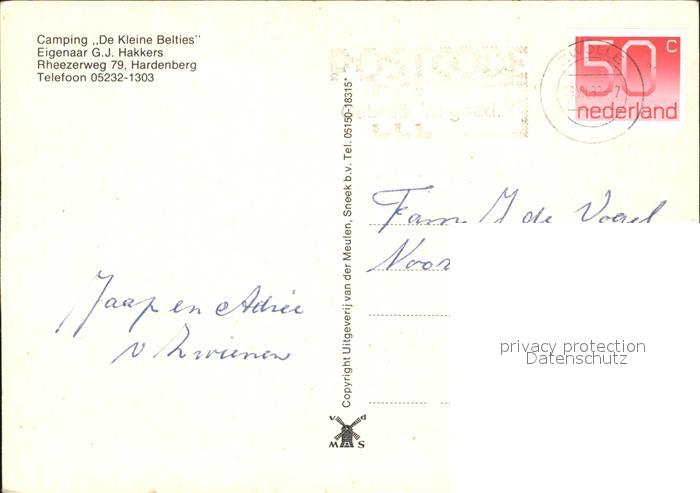 Camping „De Kleine Belties"
Eigenaar G.J. Hakkers
Rheezerweg 79, Hardenberg
Telefoon 05232-1303
POSTCODE
gebruik 'm goed.
ZWOLLE
50 c
nederland
Copyright Uitgeverij van der Meulen, Sneek b.v. Tel. 05150-18315*
Fam de
Noor
Jaap en Adrie
v Zwienen
privacy protection
Datenschutz
v d
M S